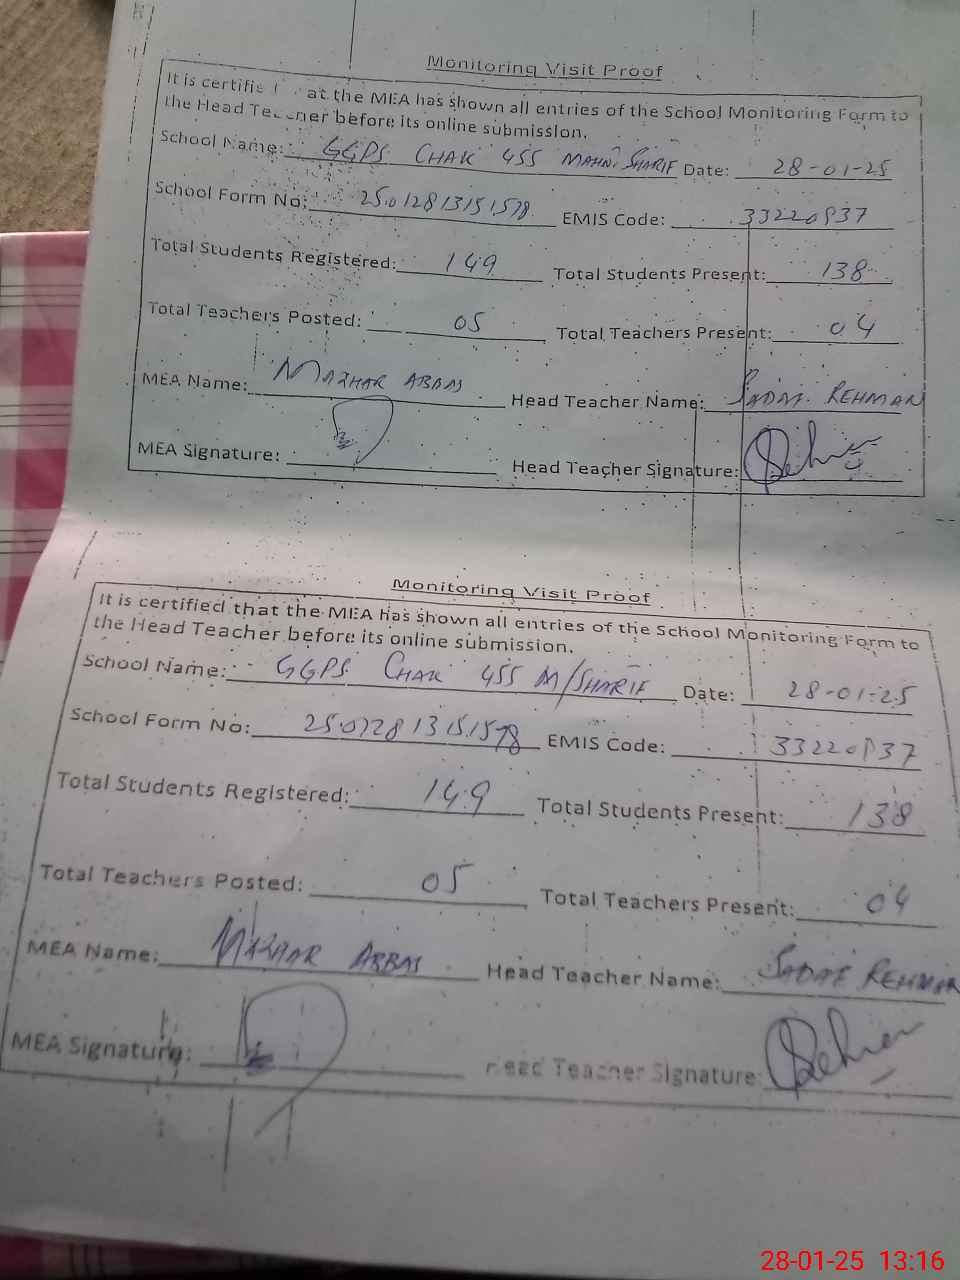 Monitoring Visit Proof
It is certified at the MEA has shown all entries of the School Monitoring Form to
the Head Teacher before its online submission.
School Name: GGPS CHAK 455 MAHNI SHARIF Date: 28-01-25
School Form No: 25012813151578 EMIS Code: 33220837
Total Students Registered: 149 Total Students Present: 138
Total Teachers Posted: 05 Total Teachers Present: 04
MEA Name: MAZHAR ABBAS Head Teacher Name: SADAF REHMAN
MEA Signature: Head Teacher Signature:
Monitoring Visit Proof
It is certified that the MEA has shown all entries of the School Monitoring Form to
the Head Teacher before its online submission.
School Name: GGPS CHAK 455 M/SHARIF Date: 28-01-25
School Form No: 25012813151578 EMIS Code: 33220837
Total Students Registered: 149 Total Students Present: 138
Total Teachers Posted: 05 Total Teachers Present: 04
MEA Name: MAZHAR ABBAS Head Teacher Name: SADAF REHMAN
MEA Signature: Head Teacher Signature:
28-01-25 13:16